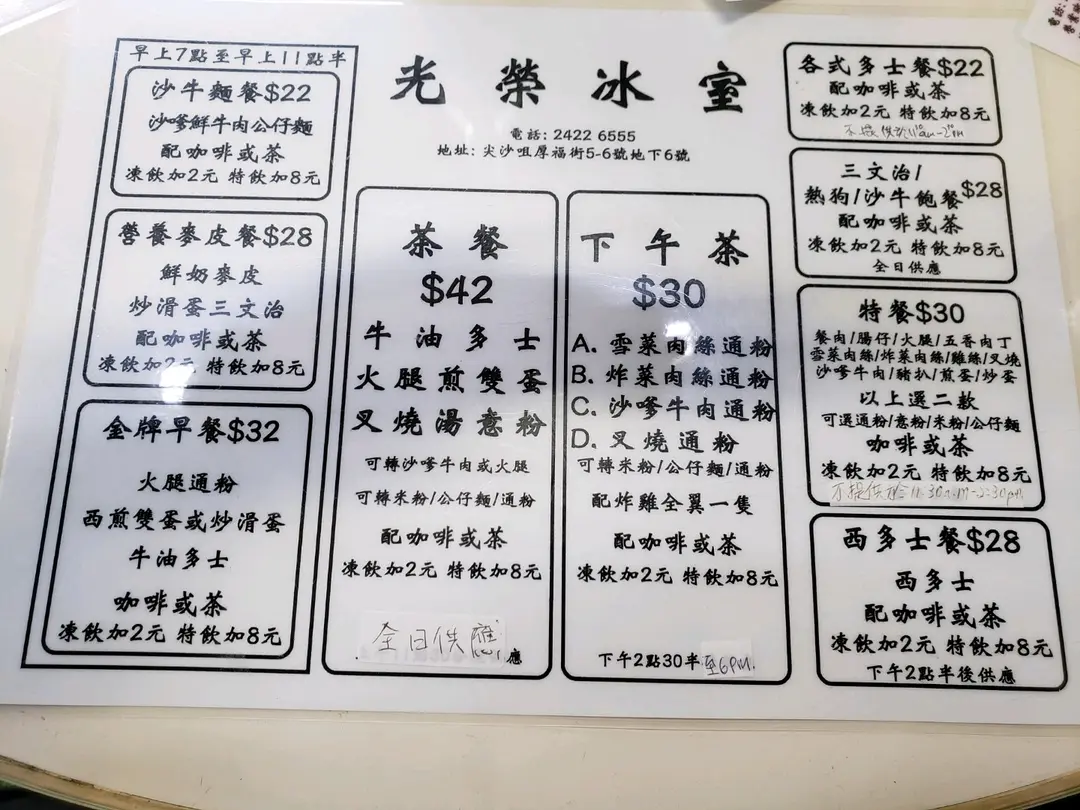 光榮冰室
電話: 2422 6555
地址: 尖沙咀厚福街5-6號地下6號
早上7點至早上11點半
沙牛麵餐$22
沙嗲鮮牛肉公仔麵
配咖啡或茶
凍飲加2元 特飲加8元
營養麥皮餐$28
鮮奶麥皮
炒滑蛋三文治
配咖啡或茶
凍飲加2元 特飲加8元
金牌早餐$32
火腿通粉
西煎雙蛋或炒滑蛋
牛油多士
咖啡或茶
凍飲加2元 特飲加8元
茶餐
$42
牛油多士
火腿煎雙蛋
叉燒湯意粉
可轉沙嗲牛肉或火腿
可轉米粉/公仔麵/通粉
配咖啡或茶
凍飲加2元 特飲加8元
全日供應
應
下午茶
$30
A. 雪菜肉絲通粉
B. 炸菜肉絲通粉
C. 沙嗲牛肉通粉
D. 叉燒通粉
可轉米粉/公仔麵/通粉
配炸雞全翼一隻
配咖啡或茶
凍飲加2元 特飲加8元
下午2點30半至6PM.
各式多士餐$22
配咖啡或茶
凍飲加2元 特飲加8元
三文治/
熱狗/沙牛飽餐$28
配咖啡或茶
凍飲加2元 特飲加8元
全日供應
特餐$30
餐肉/腸仔/火腿/五香肉丁
雪菜肉絲/炸菜肉絲/雞絲/叉燒
沙嗲牛肉/豬扒/煎蛋/炒蛋
以上選二款
可選通粉/意粉/米粉/公仔麵
咖啡或茶
凍飲加2元 特飲加8元
不提供於
西多士餐$28
西多士
配咖啡或茶
凍飲加2元 特飲加8元
下午2點半後供應